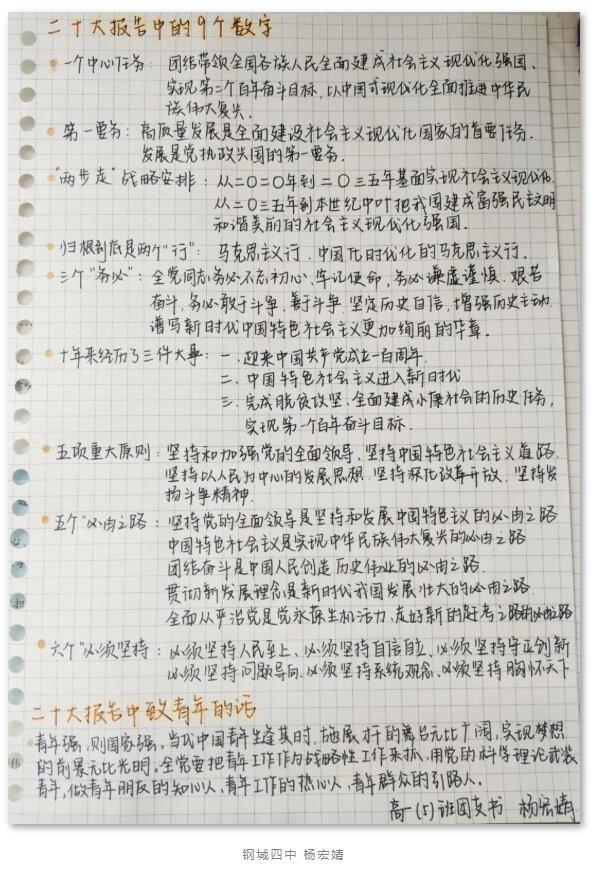 二十大报告中的9个数字
一个中心任务：团结带领全国各族人民全面建成社会主义现代化强国、
实现第二个百年奋斗目标，以中国式现代化全面推进中华民
族伟大复兴.
第一要务：高质量发展是全面建设社会主义现代化国家的首要任务.
发展是党执政兴国的第一要务.
"两步走"战略安排：从二〇二〇年到二〇三五年基本实现社会主义现代化
从二〇三五年到本世纪中叶把我国建成富强民主文明
和谐美丽的社会主义现代化强国.
归根到底是两个"行"：马克思主义行、中国化时代化的马克思主义行.
三个"务必"：全党同志务必不忘初心、牢记使命，务必谦虚谨慎、艰苦
奋斗，务必敢于斗争、善于斗争 坚定历史自信，增强历史主动
谱写新时代中国特色社会主义更加绚丽的华章.
十年来经历了三件大事：一.迎来中国共产党成立一百周年.
二.中国特色社会主义进入新时代
三.完成脱贫攻坚、全面建成小康社会的历史任务，
实现第一个百年奋斗目标.
五项重大原则：坚持和加强党的全面领导、坚持中国特色社会主义道路
坚持以人民为中心的发展思想 坚持深化改革开放、坚持发
扬斗争精神.
五个"必由之路：坚持党的全面领导是坚持和发展中国特色主义的必由之路
中国特色社会主义是实现中华民族伟大复兴的必由之路
团结奋斗是中国人民创造历史伟业的必由之路.
贯彻新发展理念是新时代我国发展壮大的必由之路.
全面从严治党是党永葆生机活力、走好新的赶考之路的必由之路
六个"必须坚持：必须坚持人民至上、必须坚持自信自立、必须坚持守正创新
必须坚持问题导向、必须坚持系统观念、必须坚持胸怀天下
二十大报告中致青年的话
青年强，则国家强，当代中国青年生逢其时，施展才干的舞台无比广阔，实现梦想
的前景无比光明。全党要把青年工作作为战略性工作来抓，用党的科学理论武装
青年，做青年朋友的知心人、青年工作的热心人、青年群众的引路人.
高一(5)班团支书 杨宏婧
钢城四中 杨宏婧